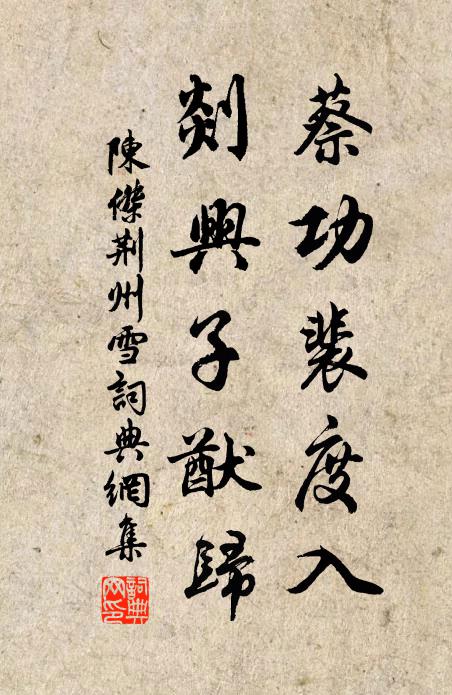 蔡功裴度入
剡興子猷歸
陳傑荆州雪詞典網集
詞典